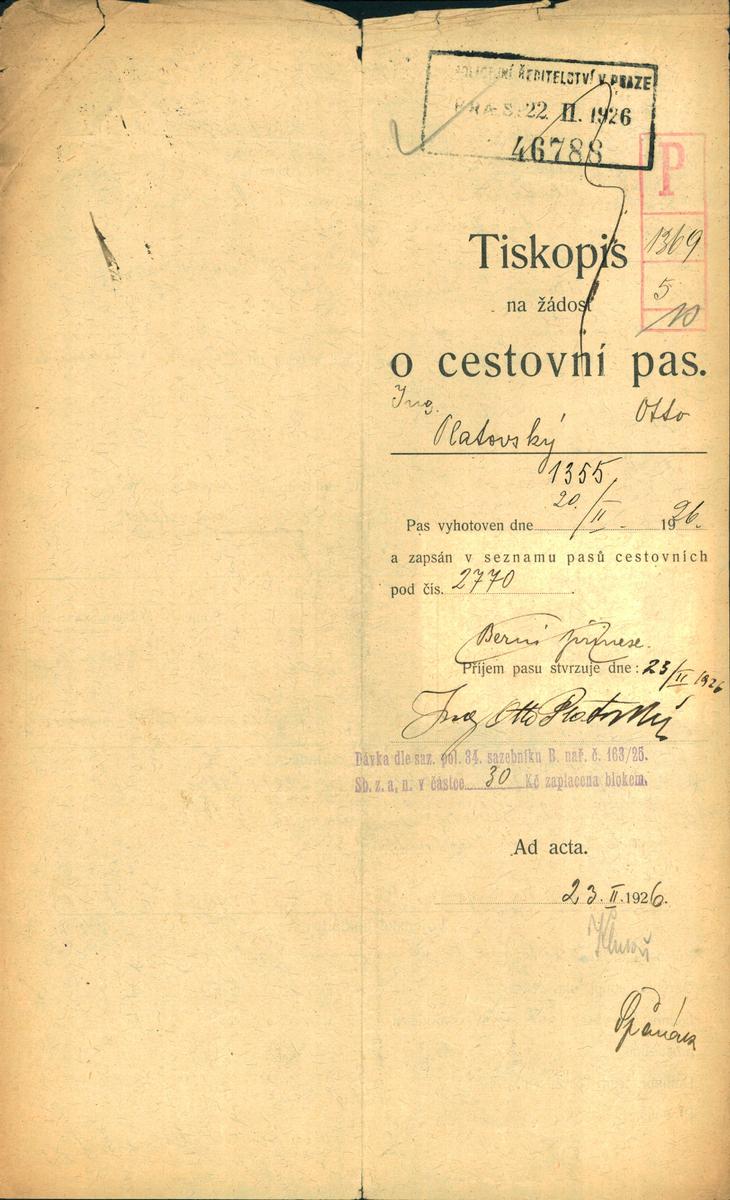 POLICEJNÍ ŘEDITELSTVÍ V PRAZE
22 II. 1926
46788
P
1369
5
10
Tiskopis
na žádost
o cestovní pas.
Ing. Otto
Platovský
1355
Pas vyhotoven dne 20/II. 1926.
a zapsán v seznamu pasů cestovních
pod čís. 2770.
Příjem pasu stvrzuje dne: 23/II 1926
Ing Otto Platovský
Dávka dle saz. pol. 34. sazebníku B. nař. č. 163/25.
Sb. z. a. n. v částce 30 Kč zaplacena blokem.
Ad acta.
23. II. 1926.